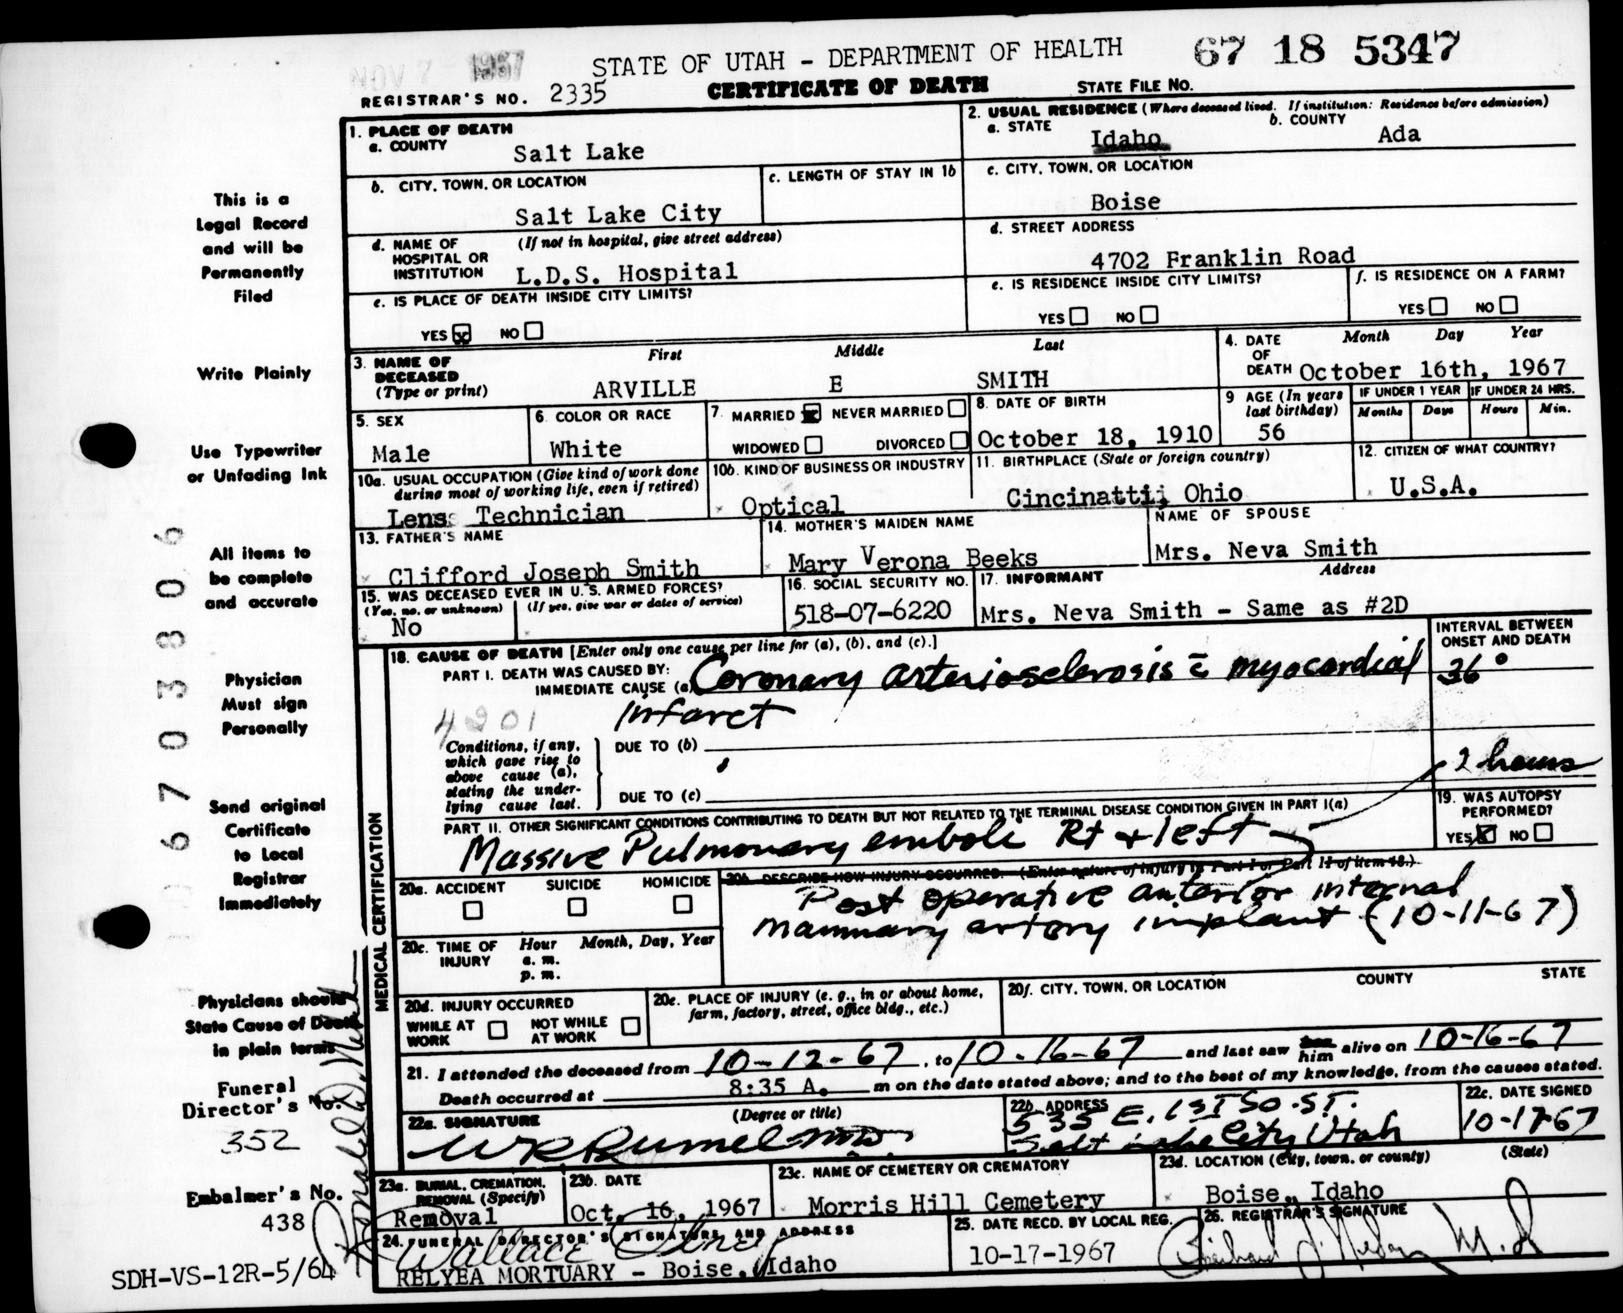 NOV 7 1967
STATE OF UTAH - DEPARTMENT OF HEALTH
67 18 5347
REGISTRAR'S NO. 2335
CERTIFICATE OF DEATH
STATE FILE NO.
1. PLACE OF DEATH
a. COUNTY
Salt Lake
2. USUAL RESIDENCE (Where deceased lived. If institution: Residence before admission)
a. STATE
Idaho
b. COUNTY
Ada
b. CITY, TOWN, OR LOCATION
Salt Lake City
c. LENGTH OF STAY IN 1b
c. CITY, TOWN, OR LOCATION
Boise
d. NAME OF HOSPITAL OR INSTITUTION
(If not in hospital, give street address)
L.D.S. Hospital
d. STREET ADDRESS
4702 Franklin Road
e. IS PLACE OF DEATH INSIDE CITY LIMITS?
YES NO
e. IS RESIDENCE INSIDE CITY LIMITS?
YES NO
f. IS RESIDENCE ON A FARM?
YES NO
3. NAME OF DECEASED
(Type or print)
First Middle Last
ARVILLE E SMITH
4. DATE OF DEATH
Month Day Year
October 16th, 1967
5. SEX
Male
6. COLOR OR RACE
White
7. MARRIED NEVER MARRIED
WIDOWED DIVORCED
8. DATE OF BIRTH
October 18, 1910
9 AGE (In years last birthday)
56
IF UNDER 1 YEAR
Months Days
IF UNDER 24 HRS.
Hours Min.
10a. USUAL OCCUPATION (Give kind of work done
during most of working life, even if retired)
Lens Technician
10b. KIND OF BUSINESS OR INDUSTRY
Optical
11. BIRTHPLACE (State or foreign country)
Cincinatti, Ohio
12. CITIZEN OF WHAT COUNTRY?
U.S.A.
13. FATHER'S NAME
Clifford Joseph Smith
14. MOTHER'S MAIDEN NAME
Mary Verona Beeks
NAME OF SPOUSE
Mrs. Neva Smith
15. WAS DECEASED EVER IN U.S. ARMED FORCES?
(Yes, no, or unknown) (If yes, give war or dates of service)
No
16. SOCIAL SECURITY NO.
518-07-6220
17. INFORMANT Address
Mrs. Neva Smith - Same as #2D
18. CAUSE OF DEATH [Enter only one cause per line for (a), (b), and (c).]
INTERVAL BETWEEN
ONSET AND DEATH
PART I. DEATH WAS CAUSED BY:
IMMEDIATE CAUSE (a)
Coronary arteriosclerosis c̄ myocardial
infarct
36°
4201
Conditions, if any,
which gave rise to
above cause (a),
stating the under-
lying cause last.
DUE TO (b)
DUE TO (c)
2 hours
PART II. OTHER SIGNIFICANT CONDITIONS CONTRIBUTING TO DEATH BUT NOT RELATED TO THE TERMINAL DISEASE CONDITION GIVEN IN PART I(a)
Massive Pulmonary emboli Rt + left
19. WAS AUTOPSY PERFORMED?
YES NO
MEDICAL CERTIFICATION
20a. ACCIDENT SUICIDE HOMICIDE
20b. DESCRIBE HOW INJURY OCCURRED. (Enter nature of injury in Part I or Part II of item 18.)
Post operative anterior internal
mammary artery implant (10-11-67)
20c. TIME OF INJURY
Hour Month, Day, Year
a. m.
p. m.
20d. INJURY OCCURRED
WHILE AT WORK NOT WHILE AT WORK
20e. PLACE OF INJURY (e. g., in or about home,
farm, factory, street, office bldg., etc.)
20f. CITY, TOWN, OR LOCATION COUNTY STATE
21. I attended the deceased from 10-12-67, to 10-16-67 and last saw him alive on 10-16-67
Death occurred at 8:35 A. m on the date stated above; and to the best of my knowledge, from the causes stated.
22a. SIGNATURE (Degree or title)
WR Rumel MD.
22b. ADDRESS
535 E. 1ST SO. ST.
Salt Lake City Utah
22c. DATE SIGNED
10-17-67
23a. BURIAL, CREMATION,
REMOVAL (Specify)
Removal
23b. DATE
Oct. 16, 1967
23c. NAME OF CEMETERY OR CREMATORY
Morris Hill Cemetery
23d. LOCATION (City, town, or county) (State)
Boise, Idaho
24. FUNERAL DIRECTOR'S SIGNATURE AND ADDRESS
Wallace
RELYEA MORTUARY - Boise, Idaho
25. DATE RECD. BY LOCAL REG.
10-17-1967
26. REGISTRAR'S SIGNATURE
M.D
This is a
Legal Record
and will be
Permanently
Filed
Write Plainly
Use Typewriter
or Unfading Ink
All items to
be complete
and accurate
Physician
Must sign
Personally
Send original
Certificate
to Local
Registrar
Immediately
Physicians should
State Cause of Death
in plain terms
Funeral
Director's No.
352
Embalmer's No.
438
SDH-VS-12R-5/64
67038306